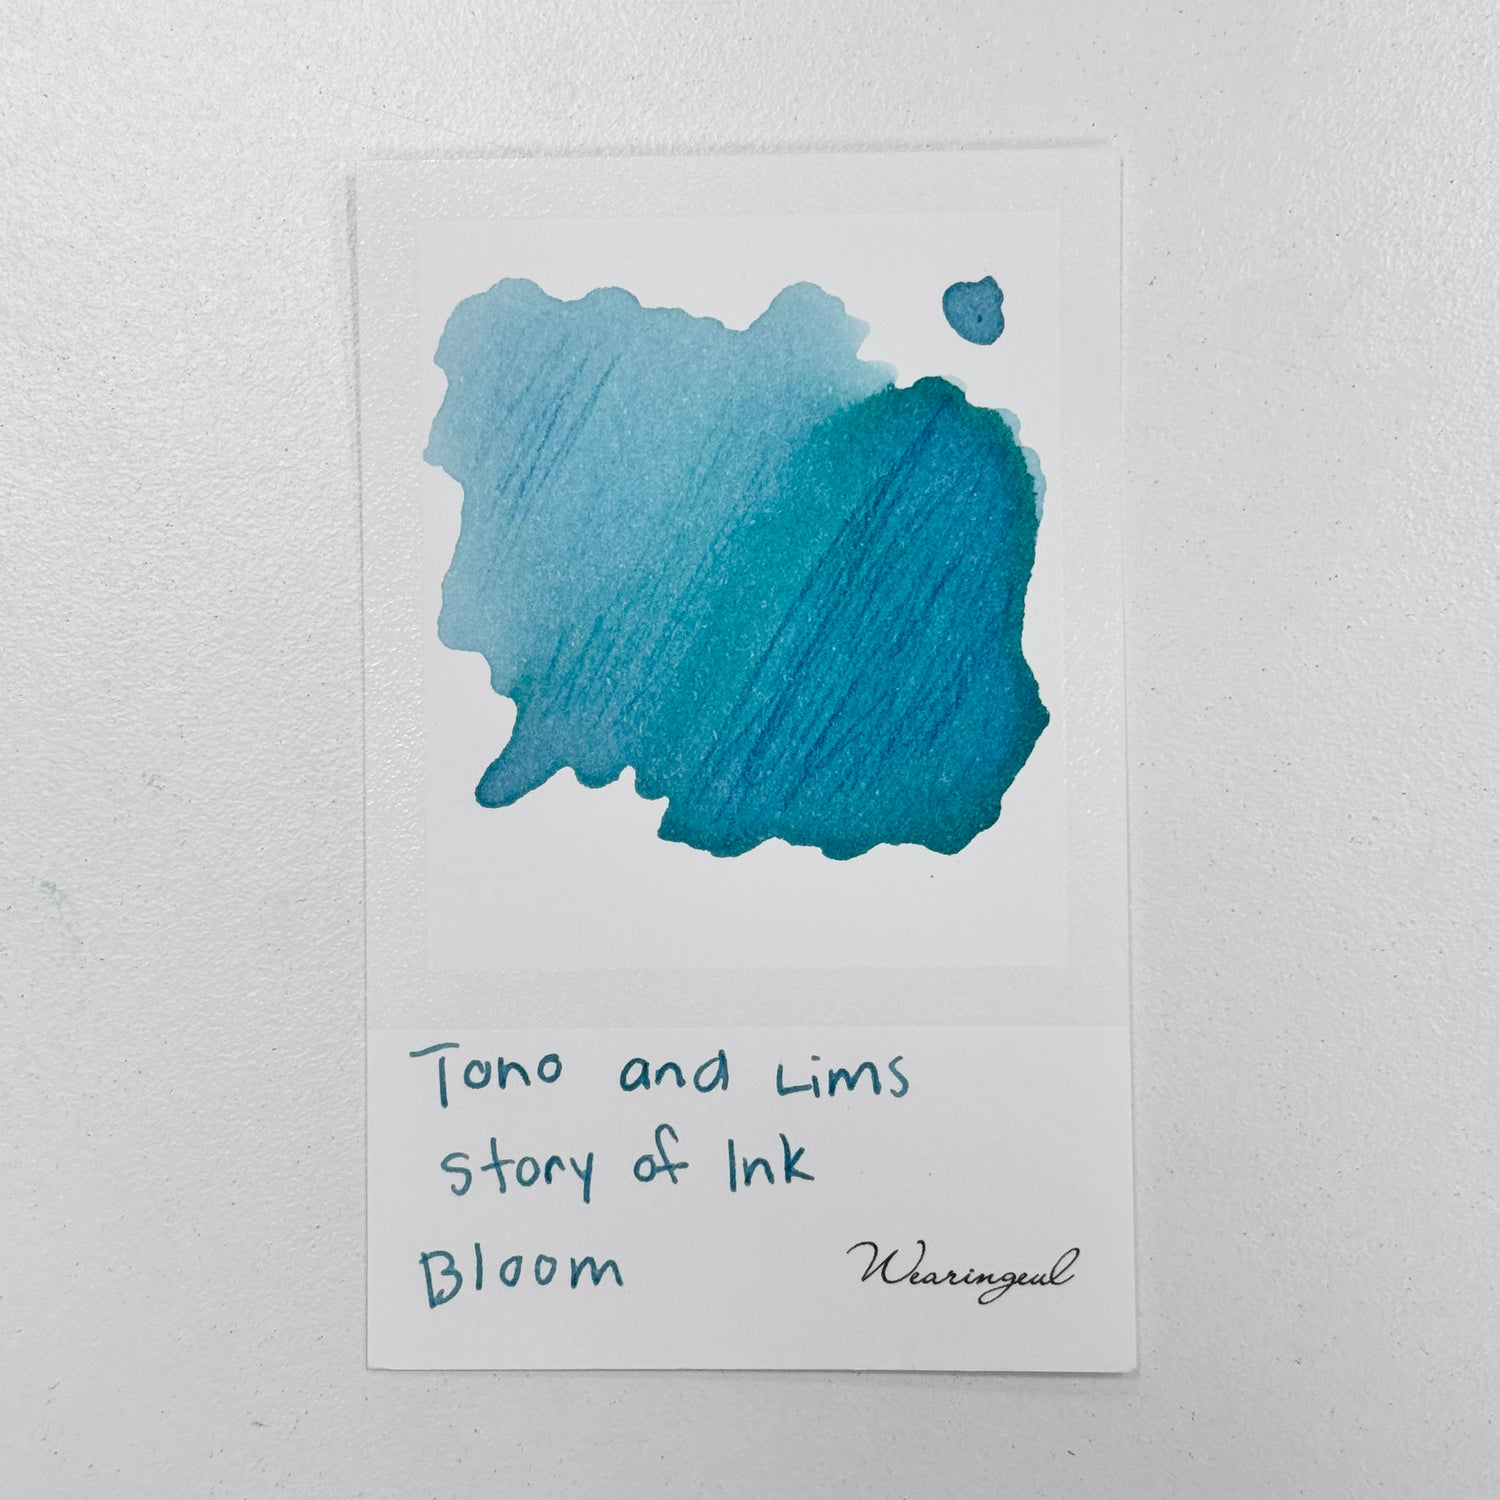 Tono and Lims
story of Ink
Bloom
Wearingeul